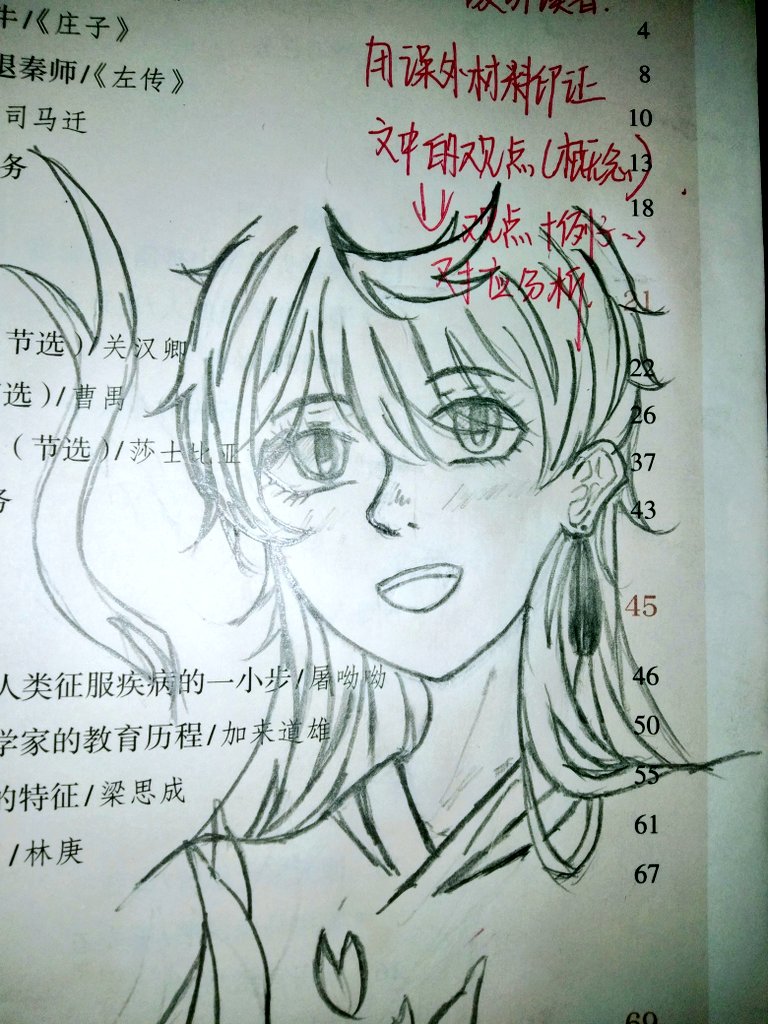 牛/《庄子》 4
退秦师/《左传》 8
司马迁 10
务 13
18
用课外材料印证
文中的观点(概念)
观点+例子→
对应分析
21
(节选)/关汉卿 22
选)/曹禺 26
(节选)/莎士比亚 37
务 43
45
人类征服疾病的一小步/屠呦呦 46
学家的教育历程/加来道雄 50
的特征/梁思成 55
/林庚 61
67
69